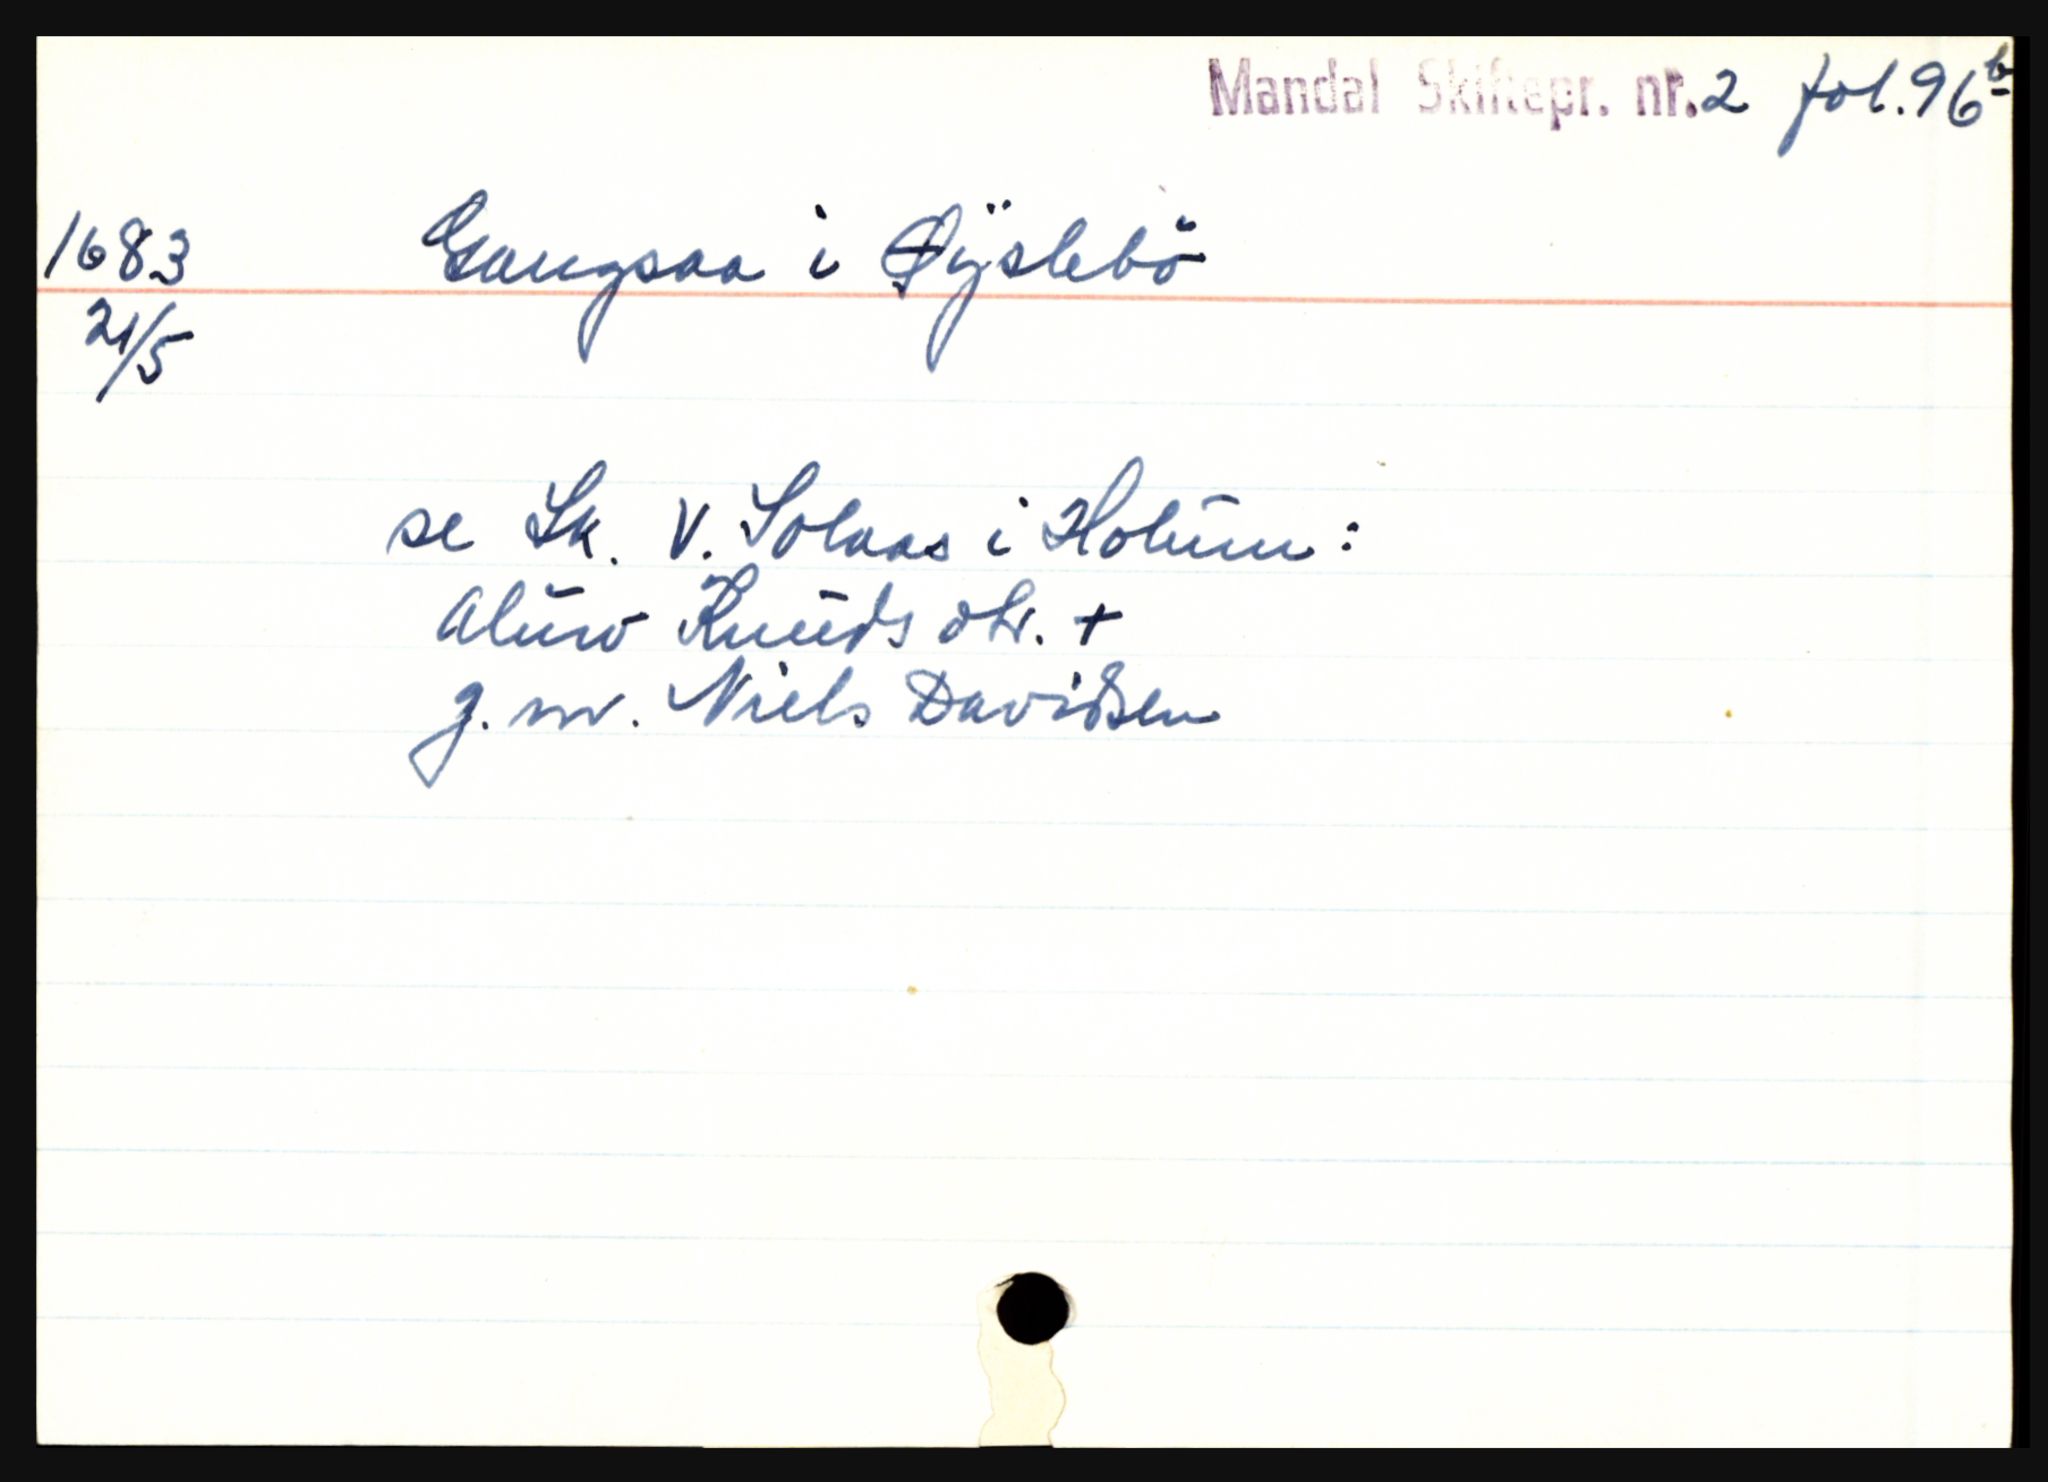 Mandal Skiftepr. nr. 2 fol. 96b
1683 Gangsaa i Øÿslebö
21/5
se Sk. v. Solaas i Holum:
Aluw Knudsdtr. +
g. m. Niels Davidsen